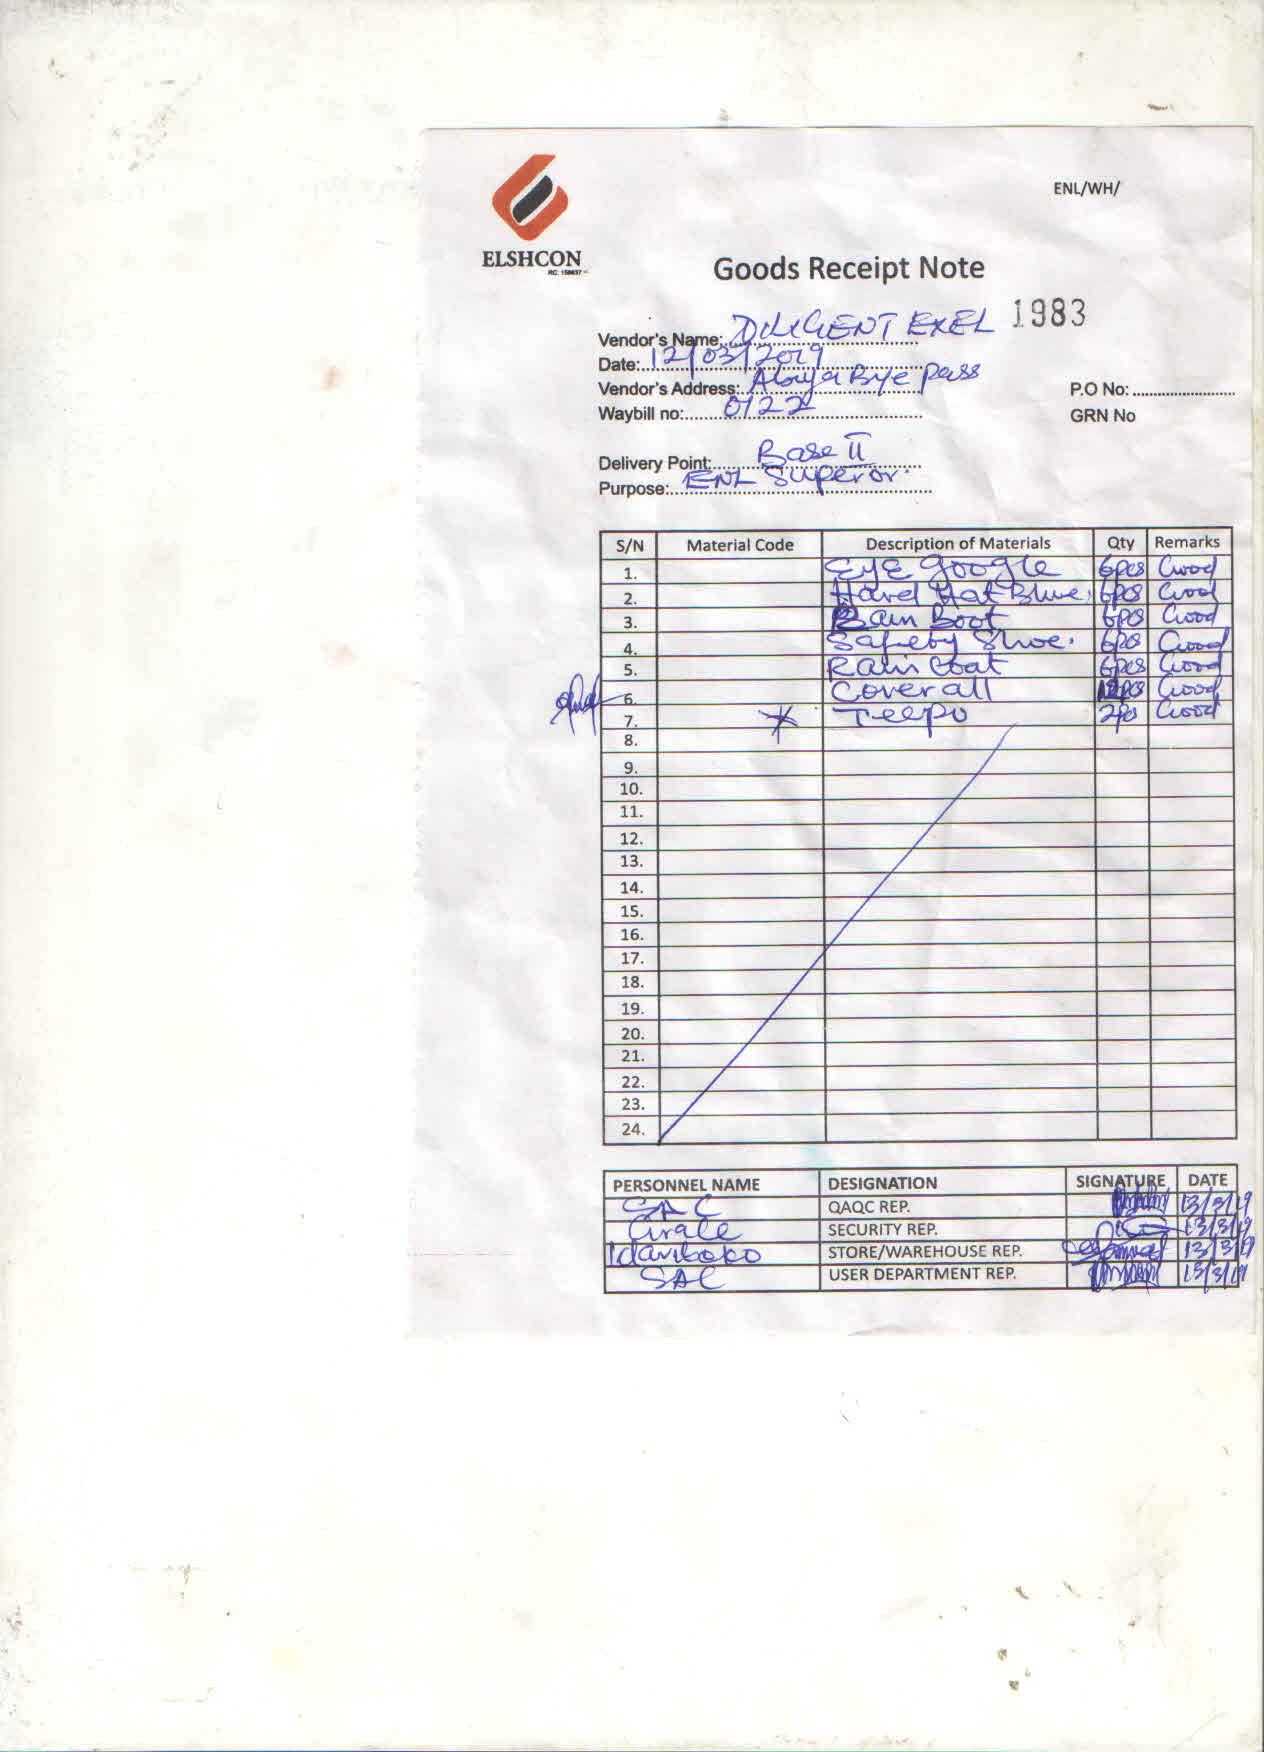 ENL/WH/
ELSHCON
RC: 156637
Goods Receipt Note
1983
Vendor's Name: DILIGENT EXEL
Date: 12/03/2019
Vendor's Address: Aloya Bye pass P.O No:
Waybill no: 0122 GRN No
Delivery Point: Base II
Purpose: ENL Superor.
S/N Material Code Description of Materials Qty Remarks
1. EyE google 6pcs Good
2. Hard Hat Blue. 6pcs Good
3. Rain Boot 6pcs Good
4. Safety Shoe. 6pcs Good
5. Rain Coat 6pcs Good
6. Coverall 12pcs Good
7. Teepo 2Pcs Good
8.
9.
10.
11.
12.
13.
14.
15.
16.
17.
18.
19.
20.
21.
22.
23.
24.
PERSONNEL NAME DESIGNATION SIGNATURE DATE
SAC QAQC REP. 13/3/19
SECURITY REP. 13/3/19
Idaviboko STORE/WAREHOUSE REP. 13/3/19
SAC USER DEPARTMENT REP. 13/3/19